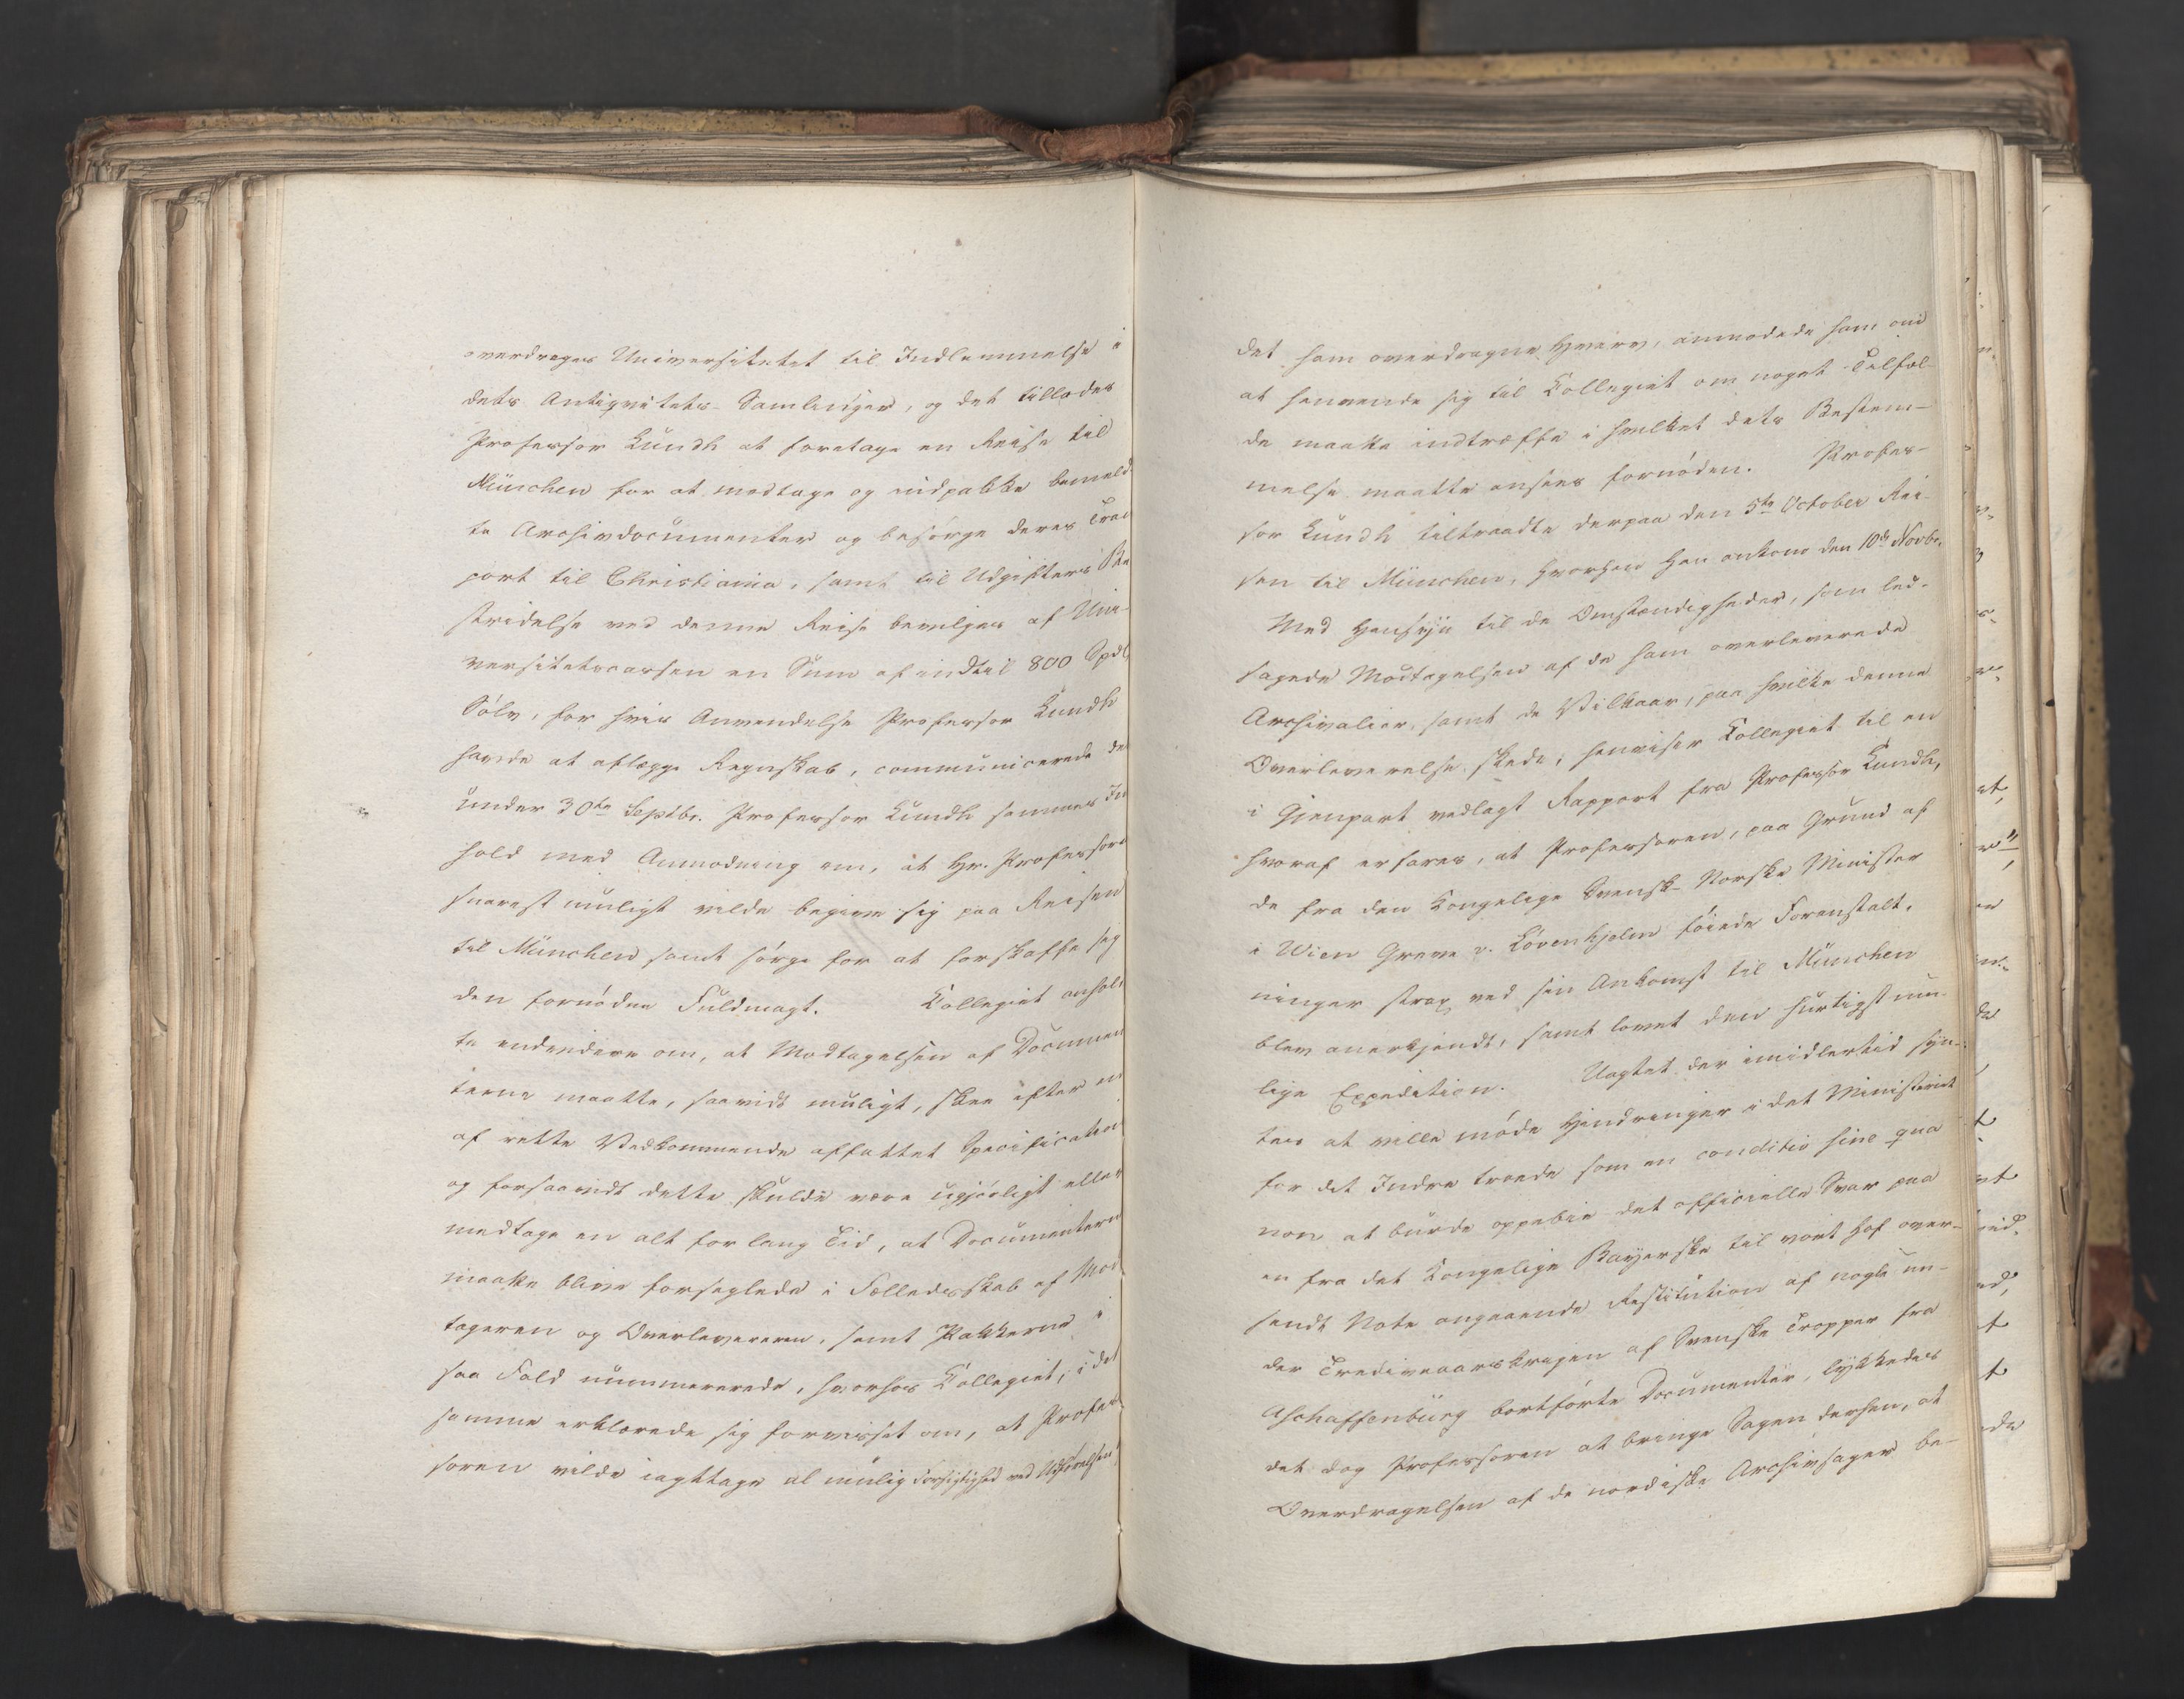 overdrages Universitetet til Indlemmelse i
dets Antiqvitets-Samlinger, og det tillodes
Professor Lundh at foretage en Reise til
München for at modtage og indpakke bemeld
te Archivdocumenter og besørge deres Tran
port til Christiania, samt til Udgifters Be
stridelse ved denne Reise bevilges af Uni-
versitetscassen en Sum af indtil 800 Spd
Sølv, for hvis Anvendelse Professor Lundh
havde at aflægge Regnskab, communicerede de
under 30te Septbr. Professor Lundh sammes In
hold med Anmodning om, at Hr. Professore
snarest muligt vilde begive sig paa Reisen
til München samt sørge for at forskaffe sig
den fornødne Fuldmagt. Collegiet anhol
te endvidere om, at Modtagelsen af Documen
terne maatte, saavidt muligt, skee efter en
af rette Vedkommende affattet Specification
og forsaavidt dette skulde være ugjørligt eller
medtage en alt for lang Tid, at Documentern
maatte blive forseglede i Fælledsskab af Mod
tageren og Overlevereren, samt Pakkerne i
saa Fald nummererede, hvorhos Collegiet, i det
samme erklærede sig forvisset om, at Profes
soren vilde iagttage al mulig Forsigtighed ved Udførelsen
det ham overdragne Hverv, anmodede ham om
at henvende sig til Collegiet om noget Tilfæl-
de maatte indtræffe i hvilket dets Bestem-
melse maatte ansees fornøden. Profes-
sor Lundh tiltraadte derpaa den 5te October Rei-
sen til München, hvorhen han ankom den 10de Novbr.
Med Hensyn til de Omstændigheder, som led-
sagede Modtagelsen af de ham overleverede
Archivalier, samt de Vilkaar, paa hvilke denne
Overleverelse skede, henviser Collegiet til en
i Gjenpart vedlagt Rapport fra Professor Lundh,
hvoraf erfares, at Professoren, paa Grund af
de fra den Kongelige Svensk-Norske Minister
i Wien Greve v. Løvenhjelm føiede Foranstalt-
ninger strax ved sin Ankomst til München
blev anerkjendt, samt lovet den hurtigst mu-
lige Expedition. Uagtet der imidlertid syn-
tes at ville møde Hindringer i det Ministeriet
for det Indre troede som en conditio sine qua
non at burde oppebie det officielle Svar paa
en fra det Kongelige Bayerske til vort Hof over-
sendt Note angaaende Restitution af nogle un-
der Trediveaarskrigen af Svenske Tropper fra
Aschaffenburg bortførte Documenter, lykkedes
det dog Professoren at bringe Sagen derhen, at
Overdragelsen af de nordiske Archivsager be-